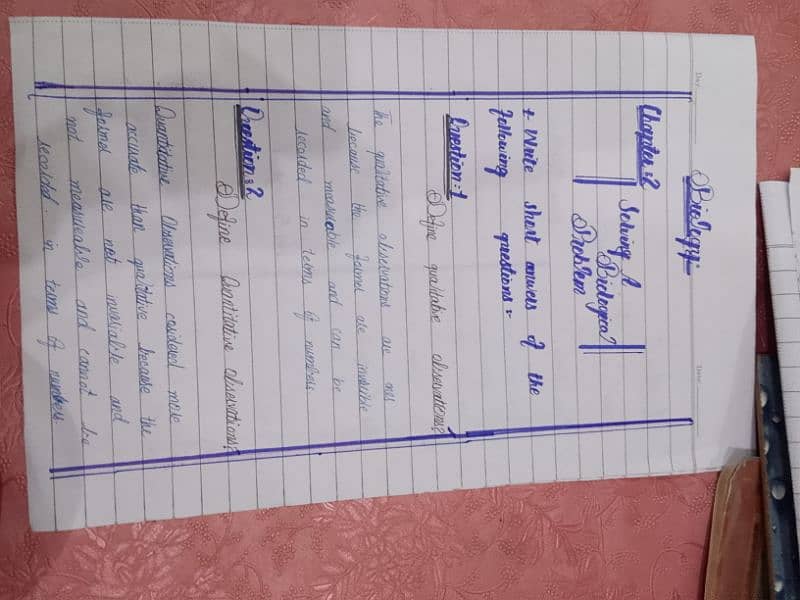 Day
Date
Biology
Chapter:2
Solving A
Biological
Problem
+ Write short anwers of the
following questions:-
Question:1
Define qualitative observations?
The qualitative observations are
because the formel are invisible
and measurable and can be
recorded in terms of numbers
Question:2
Define Quantitative observations?
Quantitative observations more
accurate than qualitative because the
formel are not invariable and
not measureable and cannot be
recorded in terms of numbers